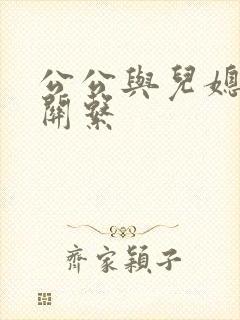 公公與兒媳
關繫
齊家穎子